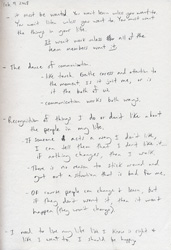 - it must be wanted. You can't learn unless you want to.
You can't listen unless you want to. You must want
the things in your life.
It won't work unless all of the
team members want it.
- The dance of communication.
- like
and attention to
the moment is it just me, or is
it the both of us
- communication works both ways.
- Recognition of things I do or don't like about
the people in my life.
- If someone acts a way I don't like,
I can tell them that I don't like it
if nothing changes, then I walk.
- There is no reason to stick around and
get out a situation that is bad for me.
- Of course people can change & learn, but
if they don't want it, then it won't
happen (they won't change).
- I want to live my life like I know is right &
like I want to. I should be happy.